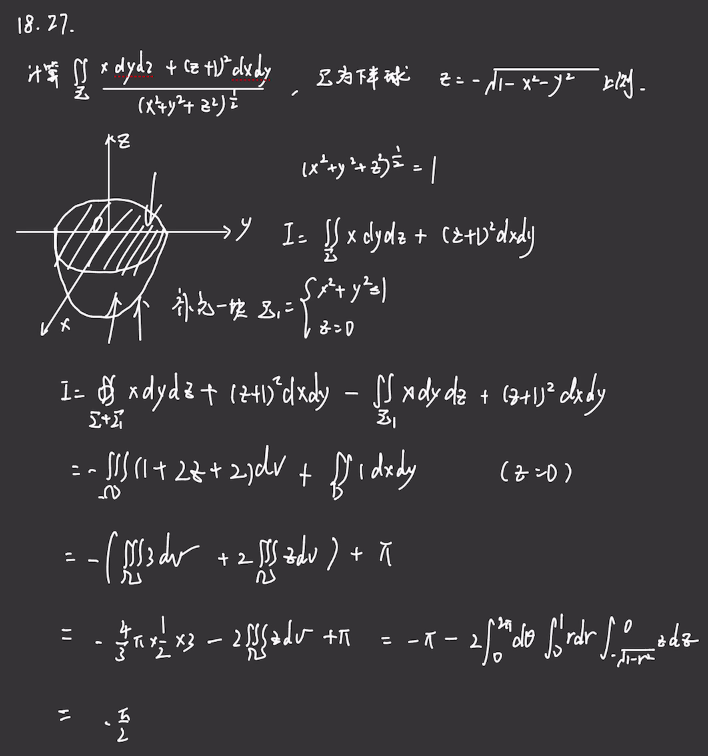 18.27.
计算 ∬_Σ (x dydz + (z+1)² dxdy) / (x²+y²+z²)^(1/2) , Σ为下半球 z = -√(1-x²-y²) 上侧.
z
(x²+y²+z²)^(1/2) = 1
O y I = ∬_Σ x dydz + (z+1)² dxdy
x 补充一块 Σ₁ = { x²+y²≤1
z=0
I = ∯_(Σ+Σ₁) x dydz + (z+1)² dxdy - ∬_Σ₁ x dydz + (z+1)² dxdy
= - ∭_Ω (1+2z+2) dv + ∬_D 1 dxdy (z=0)
= - ( ∭_Ω 3 dv + 2 ∭_Ω z dv ) + π
= - 4/3 π × 1/2 × 3 - 2 ∭_Ω z dv + π = -π - 2 ∫_0^2π dθ ∫_0^1 r dr ∫_(-√(1-r²))^0 z dz
= - π/2